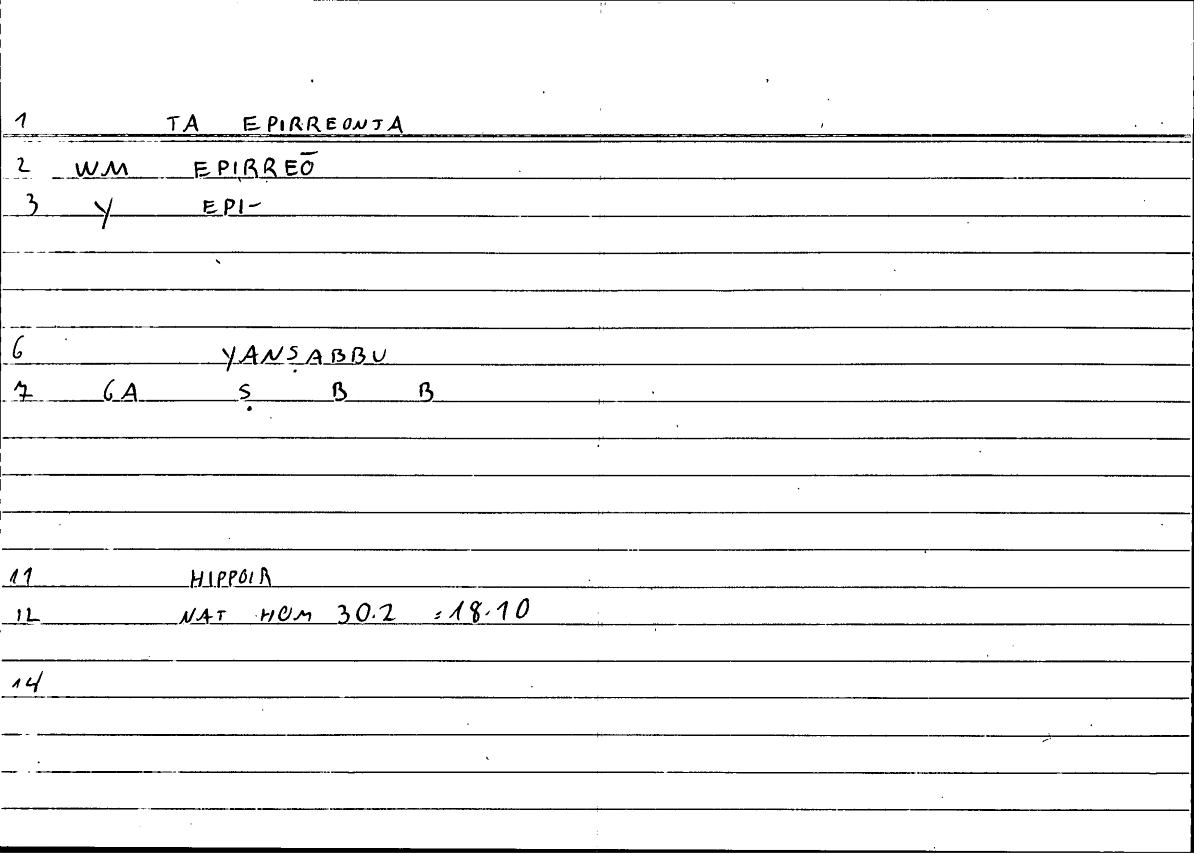 1 TA EPIRREONTA
2 WM EPIRREŌ
3 Y EPI-
6 YANṢABBU
7 6A Ṣ B B
11 HIPPOIR
12 NAT HOM 30.2 =18.10
14